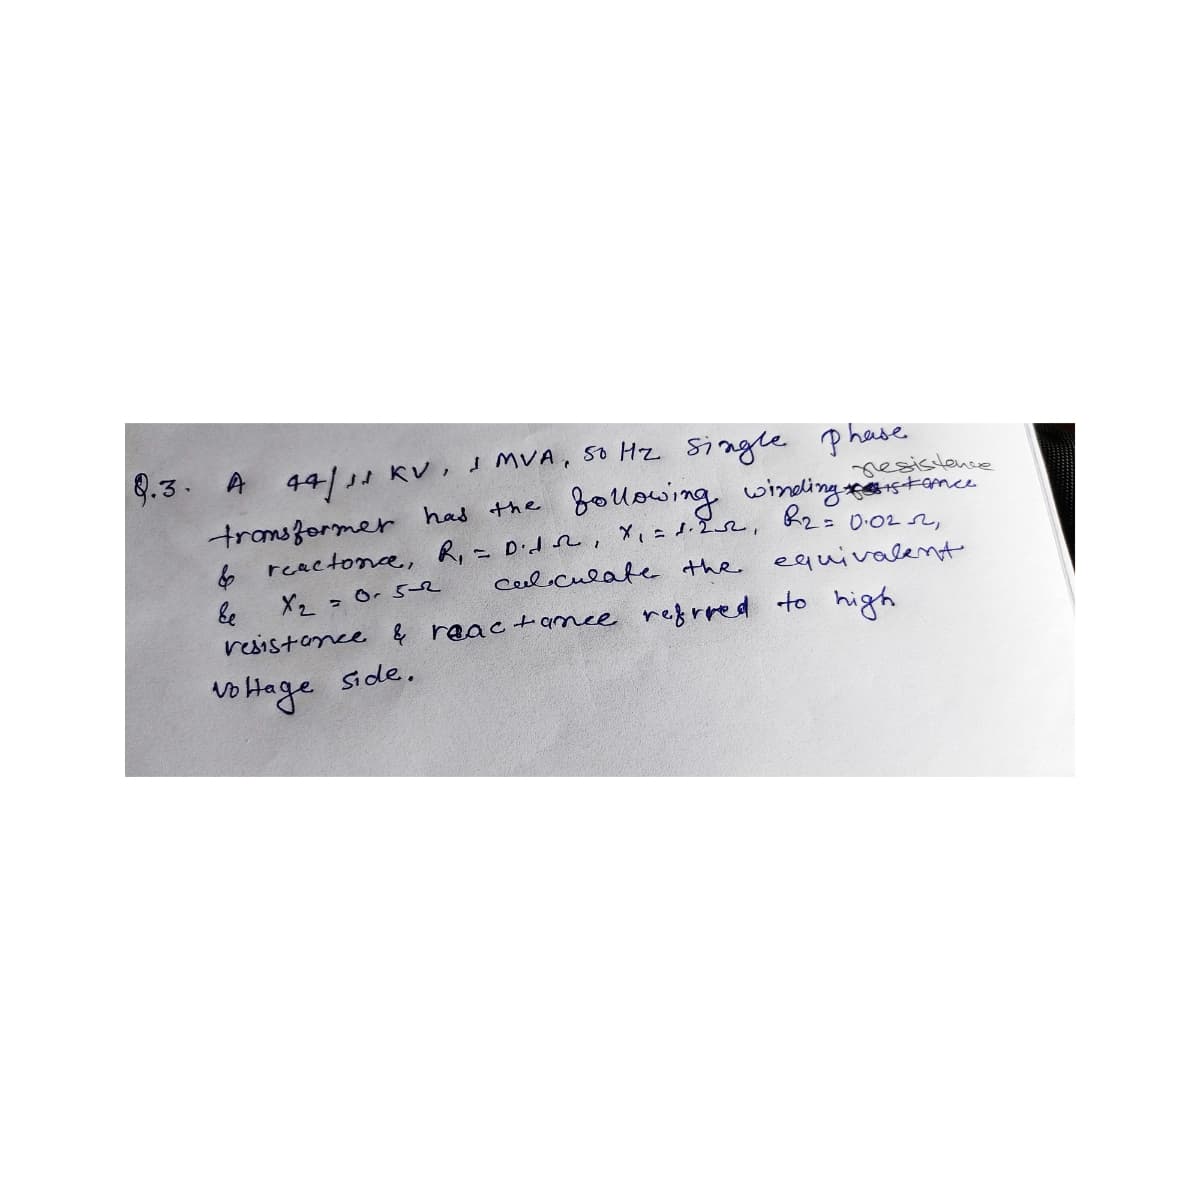 Q.3. A 44/11 KV, 1 MVA, 50 Hz Single phase
transformer has the following winding resistence
& reactance, R1 = 0.1 Ω, X1 = 1.2 Ω, R2 = 0.02 Ω,
& X2 = 0.5 Ω calculate the equivalent
resistance & reactance refrred to high
voltage side.